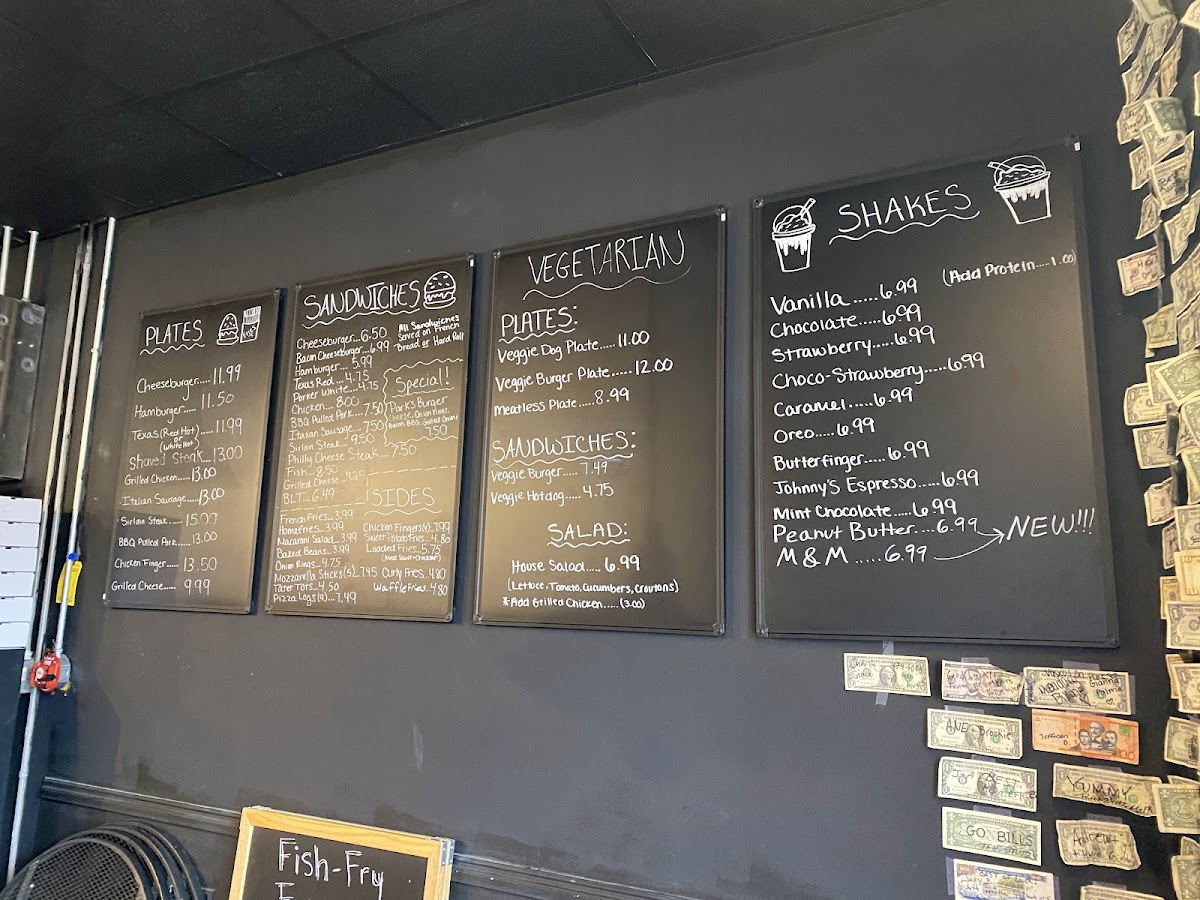 PLATES
Cheeseburger....11.99
Hamburger.....11.50
Texas (Red Hot)....11.99
or
(White Hot)
Shaved Steak...13.00
Grilled Chicken....13.00
Italian Sausage....13.00
Sirloin Steak.....15.00
BBQ Pulled Pork....13.00
Chicken Finger.....13.50
Grilled Cheese.....9.99
SANDWICHES
All Sandwiches
Served on French
Bread or Hard Roll
Cheeseburger...6.50
Bacon Cheeseburger...6.99
Hamburger...5.99
Texas Red...4.75
Porker White...4.75
Chicken...8.00
BBQ Pulled Pork...7.50
Italian Sausage...7.50
Sirloin Steak...9.50
Philly Cheese Steak...7.50
Fish...8.50
Grilled Cheese...4.25
BLT...6.49
Special!
Park's Burger
7.50
SIDES
French Fries...3.99
Homefries...3.99
Macaroni Salad...3.99
Baked Beans...3.99
Onion Rings...4.75
Mozzarella Sticks(5)...7.45
Tater Tots...4.50
Pizza Logs(4)...7.49
Chicken Fingers(4)..7.99
Sweet Potato Fries..4.80
Loaded Fries..5.75
(Meat Sauce + Cheese)
Curly Fries..4.80
Waffle Fries..4.80
VEGETARIAN
PLATES:
Veggie Dog Plate.....11.00
Veggie Burger Plate.....12.00
Meatless Plate....8.99
SANDWICHES:
Veggie Burger.....7.49
Veggie Hotdog.....4.75
SALAD:
House Salad.....6.99
(Lettuce, Tomato, Cucumbers, Croutons)
*Add Grilled Chicken.....(3.00)
SHAKES
(Add Protein....1.00)
Vanilla.....6.99
Chocolate.....6.99
Strawberry.....6.99
Choco-Strawberry.....6.99
Caramel.....6.99
Oreo.....6.99
Butterfinger.....6.99
Johnny's Espresso.....6.99
Mint Chocolate.....6.99
Peanut Butter....6.99
M & M.....6.99
NEW!!!
Fish-Fry
ANE + Brookie
YUMMY
GO BILLS